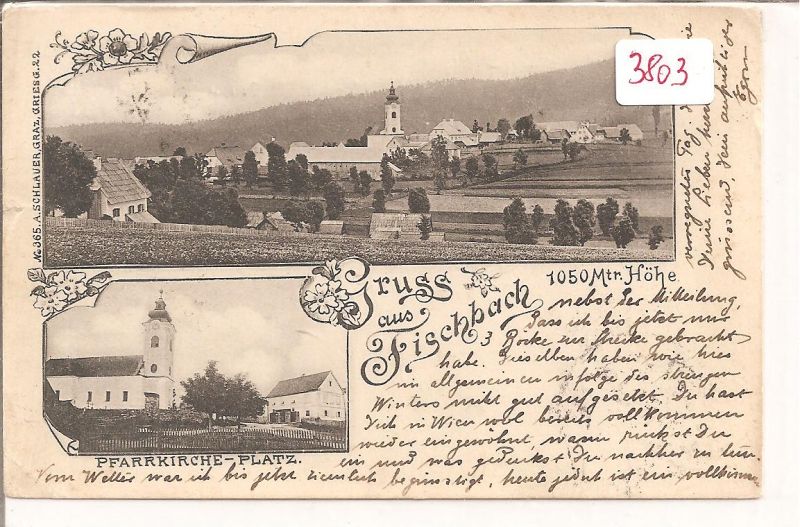 3803
No 365. A. SCHLAUER, GRAZ, GRIESG. 22
Gruss
aus
Fischbach
1050 Mtr. Höhe
PFARRKIRCHE-PLATZ.
nebst der Mitteilung,
dass ich bis jetzt nur
3 Böcke zur Strecke gebracht
habe. Dieselben haben wie hies
im allgemeinen infolge des strengen
Winters nicht gut aufgesetzt. Du hast
Dich in Wien wol bereits vollkommen
wieder eingewöhnt, wann rückst Du
ein und was gedenkst Du nachher zu tun.
Vom Wetter war ich bis jetzt ziemlich begünstigt, heute jedoch ist ein vollkommen
verregneter Tag.
Deine Lieben
grüssend, Dein aufrichtiger
Egon